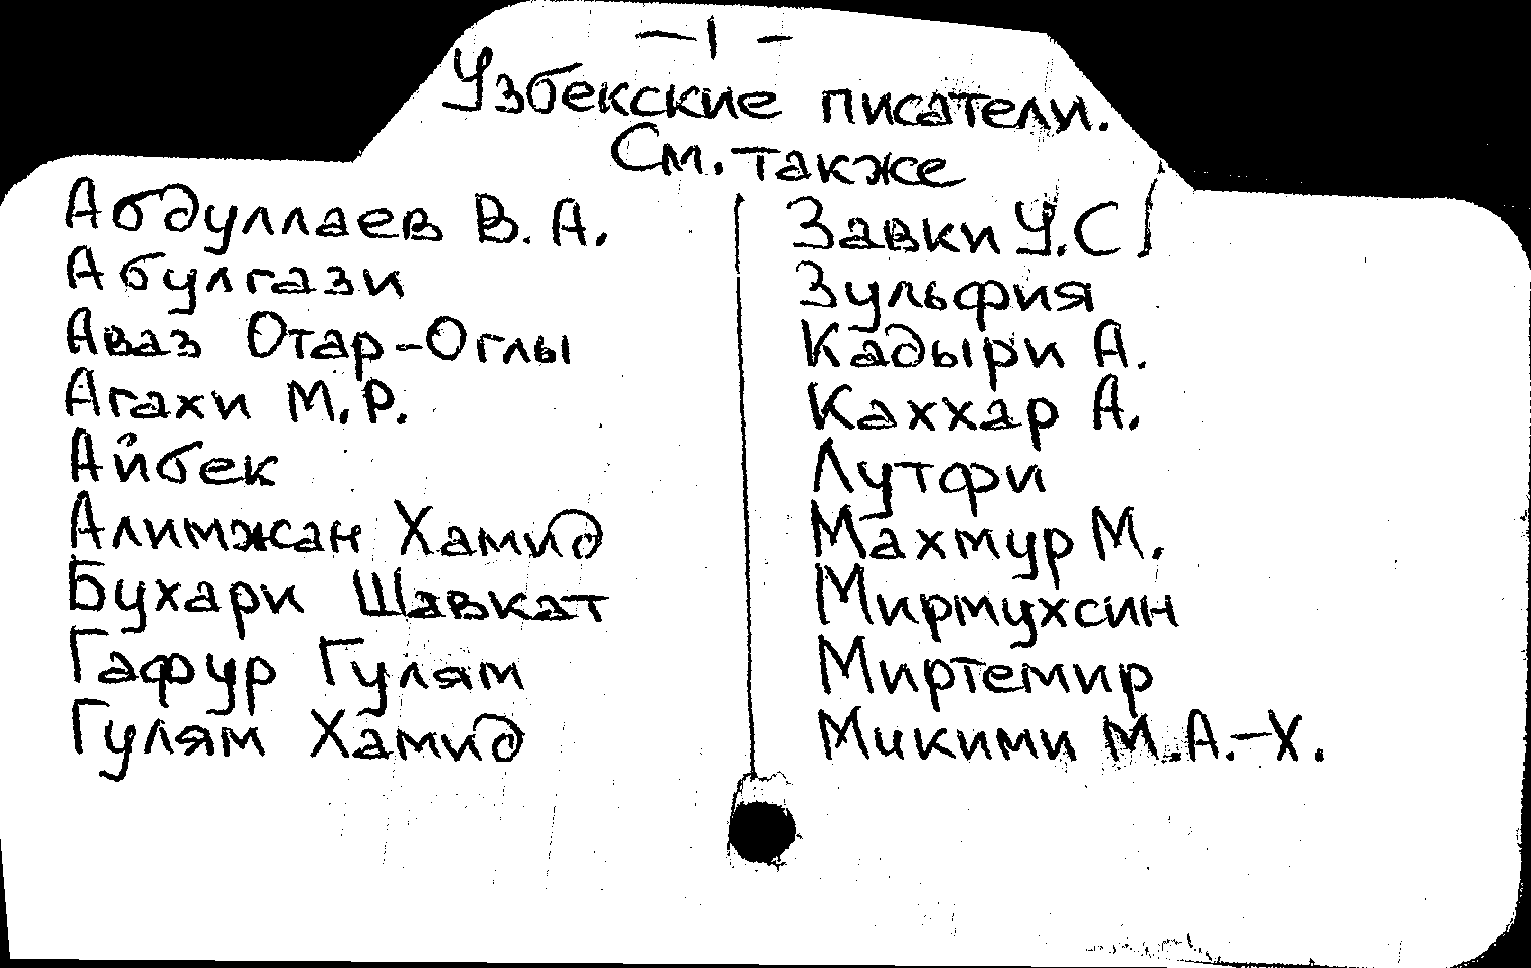 — 1 -
Узбекские писатели.
См. также
Абдуллаев В. А.
Абулгази
Аваз Отар-Оглы
Агахи М. Р.
Айбек
Алимжан Хамид
Бухари Шавкат
Гафур Гулям
Гулям Хамид
Завки У.С.
Зульфия
Кадыри А.
Каххар А.
Лутфи
Махмур М.
Мирмухсин
Миртемир
Микими М.А.-Х.